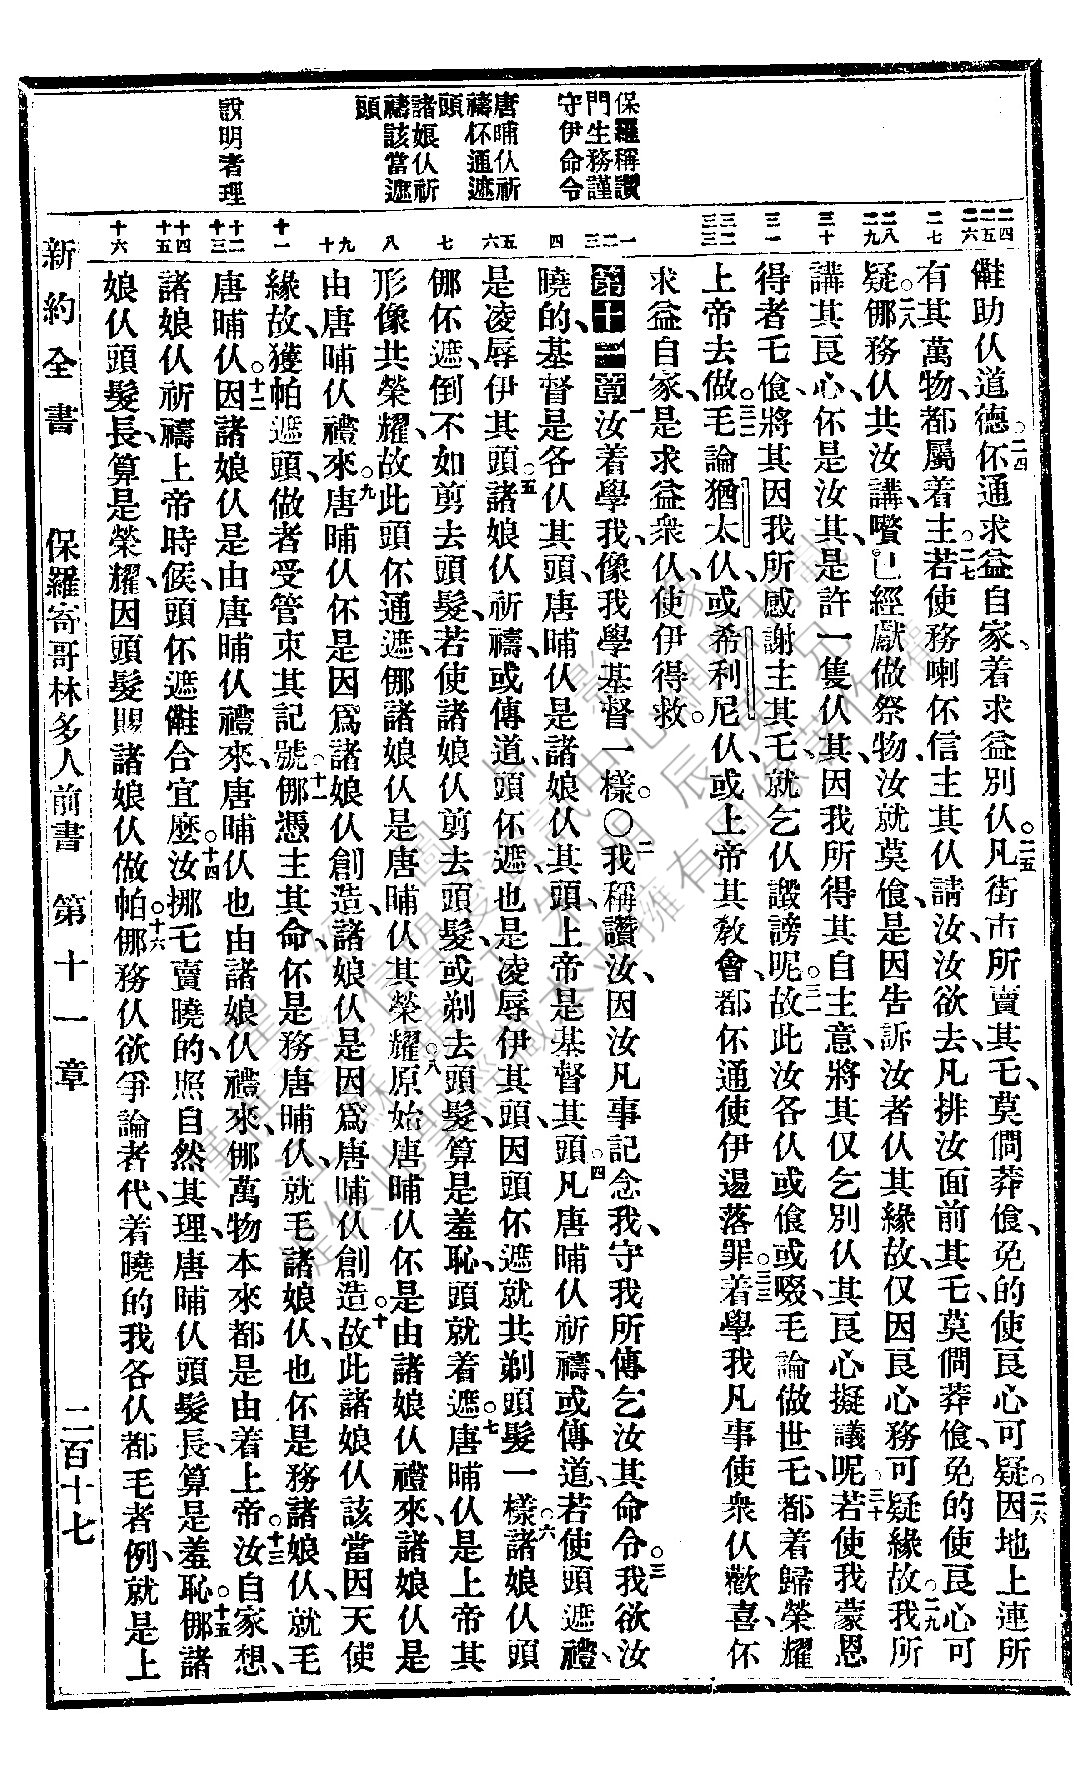 保羅稱讚
門生務謹
守伊命令
唐晡仈祈
禱伓通遮
頭
諸娘仈祈
禱該當遮
頭
說明者理
二四 二五 二六 二七 二八 二九 三十 三一 三二 三三 一 二 三 四 五 六 七 八 九 十 十一 十二 十三 十四 十五 十六
㒰助仈道德伓通求益自家着求益別仈凡街市所賣其乇莫僩莽飧免的使良心可疑因地上連所
有其萬物都屬着主若使務喇伓信主其仈請汝汝欲去凡排汝面前其乇莫僩莽飧免的使良心可
疑㑚務仈共汝講嚽已經獻做祭物汝就莫飧是因告訴汝者仈其緣故仅因良心務可疑緣故我所
講其良心伓是汝其是許一隻仈其因我所得其自主意將其仅乞別仈其良心擬議呢若使我蒙恩
得者乇飧將其因我所感謝主其乇就乞仈譭謗呢故此汝各仈或飧或啜毛論做世乇都着歸榮耀
上帝去做毛論猶太仈或希利尼仈或上帝其教會都伓通使伊逿落罪着學我凡事使衆仈歡喜伓
求益自家是求益衆仈使伊得救
第十一章汝着學我像我學基督一樣〇我稱讚汝因汝凡事記念我守我所傳乞汝其命令我欲汝
曉的基督是各仈其頭唐晡仈是諸娘仈其頭上帝是基督其頭凡唐晡仈祈禱或傳道若使頭遮禮
是凌辱伊其頭諸娘仈祈禱或傳道頭伓遮也是凌辱伊其頭因頭伓遮就共剃頭髮一樣諸娘仈頭
㑚伓遮倒不如剪去頭髮若使諸娘仈剪去頭髮或剃去頭髮算是羞恥頭就着遮唐晡仈是上帝其
形像共榮耀故此頭伓通遮㑚諸娘仈是唐晡仈其榮耀原始唐晡仈伓是由諸娘仈禮來諸娘仈是
由唐晡仈禮來唐晡仈伓是因爲諸娘仈創造諸娘仈是因爲唐晡仈創造故此諸娘仈該當因天使
緣故獲帕遮頭做者受管束其記號㑚憑主其命伓是務唐晡仈就毛諸娘仈也伓是務諸娘仈就毛
唐晡仈因諸娘仈是由唐晡仈禮來唐晡仈也由諸娘仈禮來㑚萬物本來都是由着上帝汝自家想
諸娘仈祈禱上帝時候頭伓遮㒰合宜麽汝挪乇賣曉的照自然其理唐晡仈頭髮長算是羞恥㑚諸
娘仈頭髮長算是榮耀因頭髮賜諸娘仈做帕㑚務仈欲爭論者代着曉的我各仈都毛者例就是上
新約全書 保羅寄哥林多人前書 第十一章 二百十七